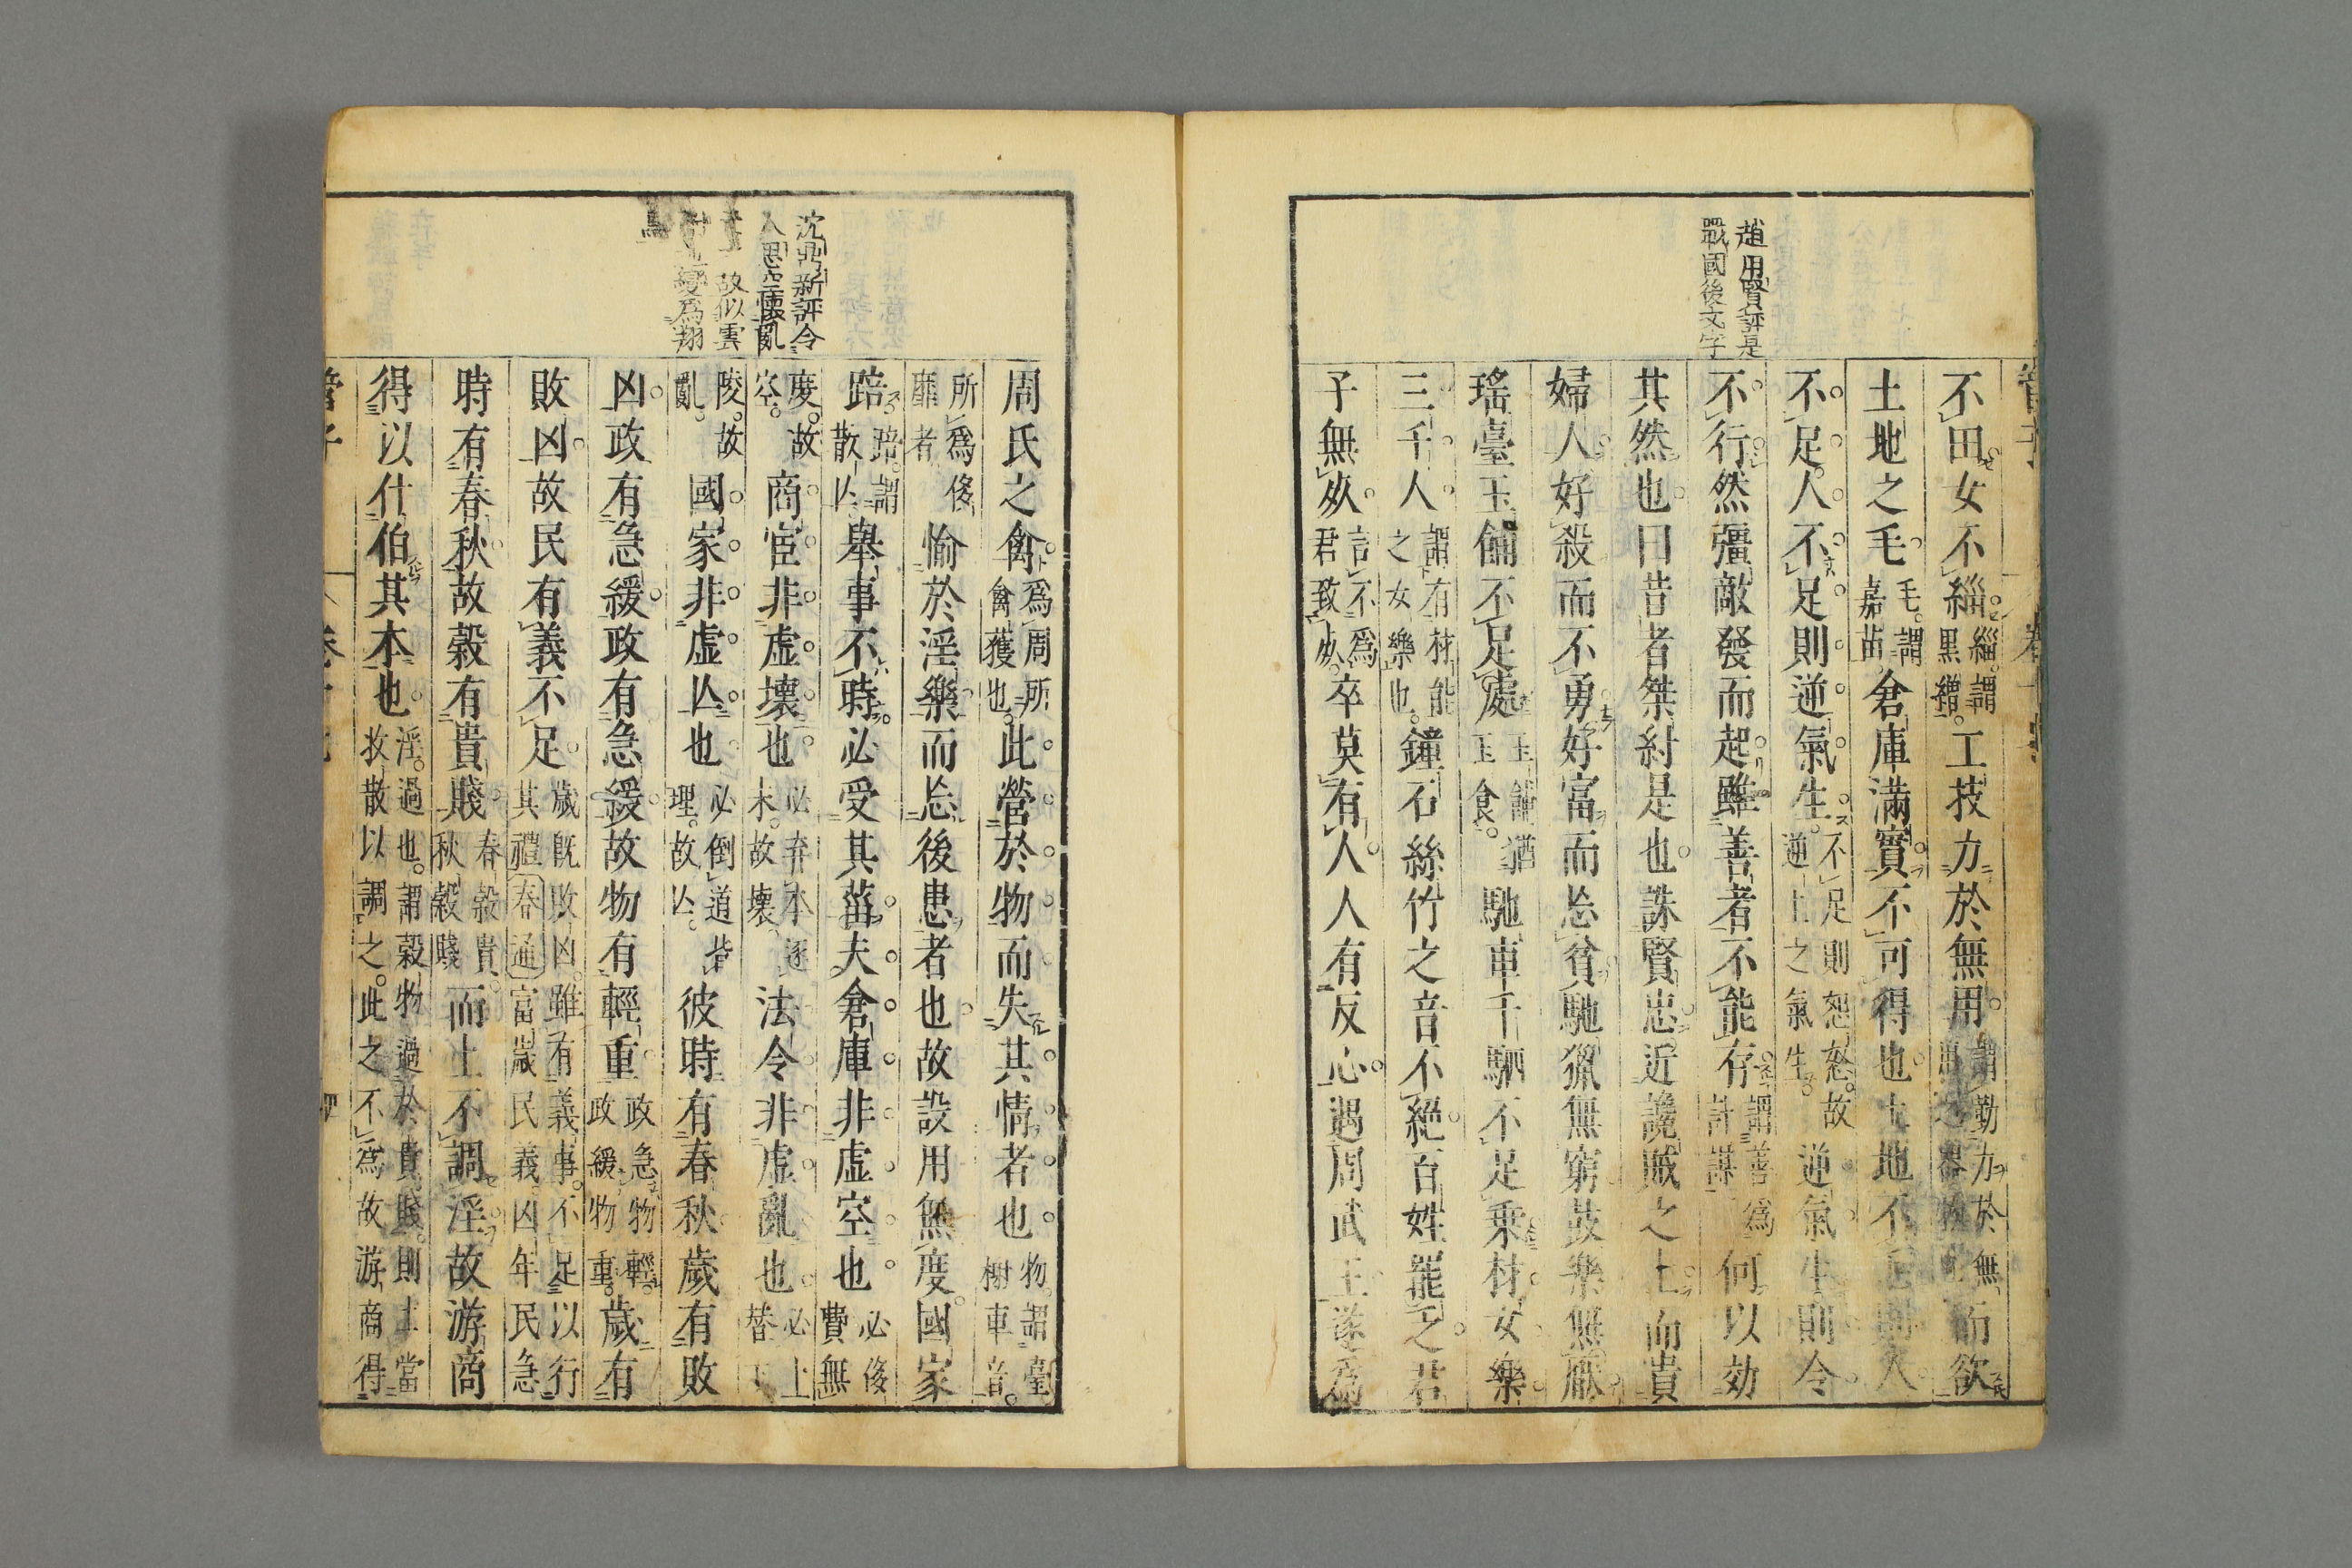 趙用賢評是
戰國後文字
不田女不緇緇謂黑繒工技力於無用謂勤力於無而欲
土地之毛毛謂嘉苗倉庫滿實不可得也土地不毛則人
不足人不足則逆氣生不足則怨怒故逆上之氣生逆氣生則令
不行然彊敵發而起雖善者不能存謂善爲計謀何以効
其然也曰昔者桀紂是也誅賢忠近讒賊之士而貴
婦人好殺而不勇好富而忘貧馳獵無窮鼓樂無厭
瑤臺玉餔不足處玉餔猶玉食馳車千駟不足乗材女樂
三千人謂有材能之女樂也鐘石絲竹之音不絕百姓罷乏君
子無死言不爲君致死卒莫有人人有反心遇周武王遂爲
沈鼎新評令
人思空壞亂
故似雲
變爲翔
周氏之禽爲周所禽獲也此營於物而失其情者也物謂臺榭車音
所爲侈靡者愉於淫樂而忘後患者也故設用無度國家
踣踣謂散亡舉事不時必受其菑夫倉庫非虛空也必侈費無
度故空商宦非虛壞也必弃本逐末故壞法令非虛亂也必上替下
陵故亂國家非虛亡也必倒道皆理故亡彼時有春秋歲有敗
凶政有急緩政有急緩故物有輕重政急物輕政緩物重歲有
敗凶故民有義不足歲旣敗凶雖有義事不足以行其禮春通富歲民義凶年民急
時有春秋故穀有貴賤春穀貴秋穀賤而上不調淫故游商
得以什伯其本也淫過也謂穀物過於貴賤則上當收散以調之此之不爲故游商得
管子